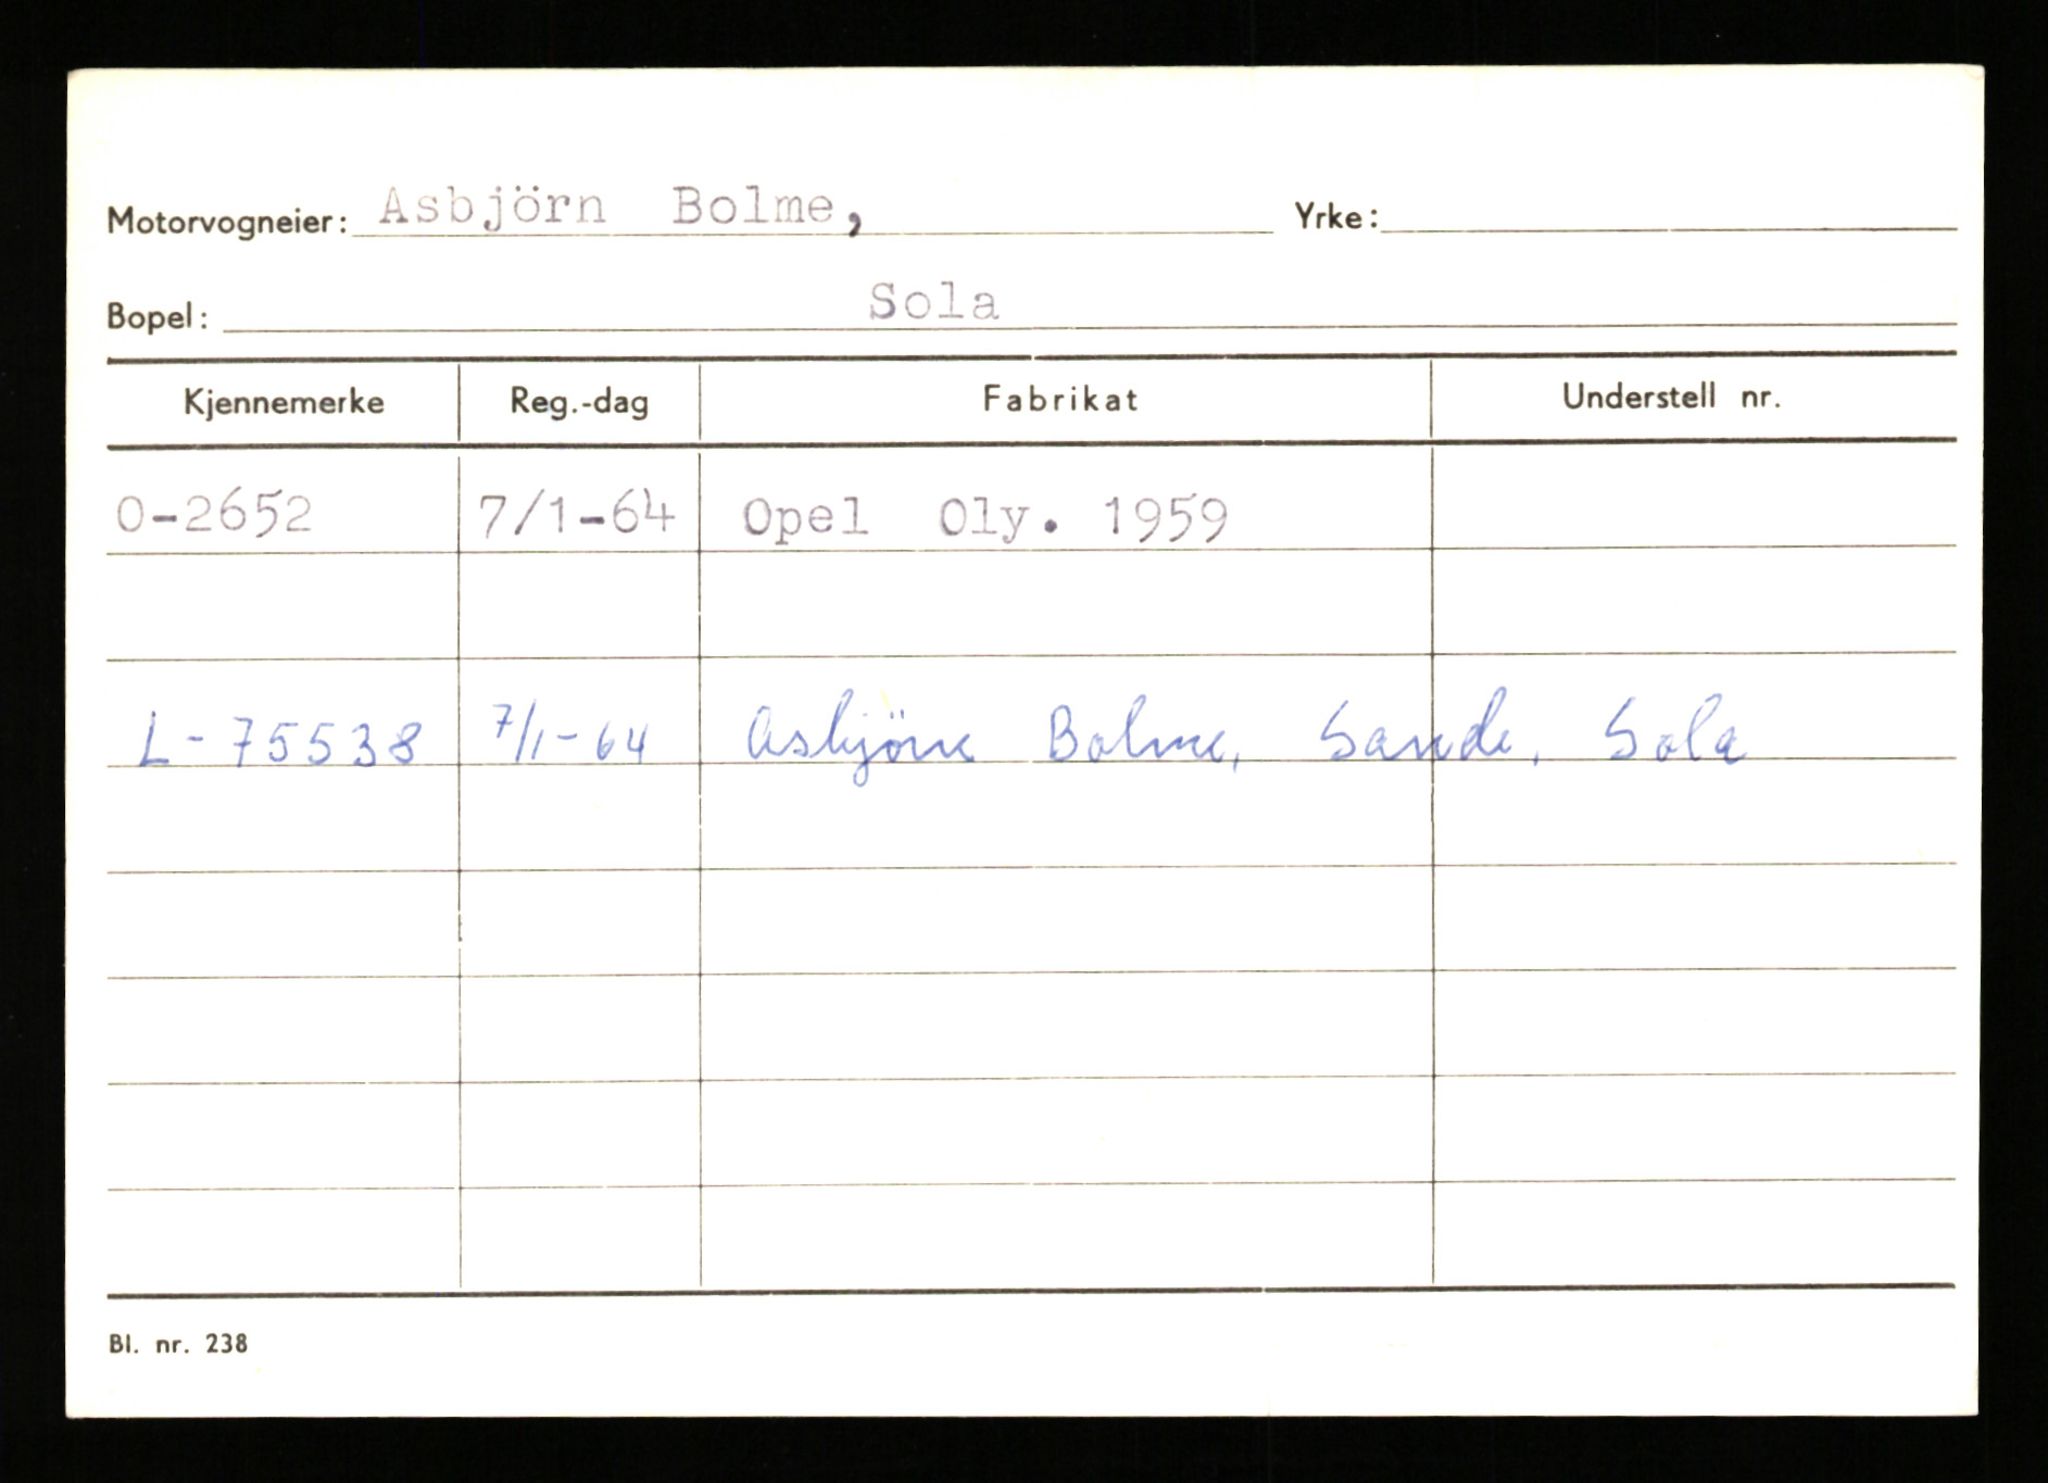 Motorvogneier: Asbjörn Bolme, Yrke:
Bopel: Sola
Kjennemerke Reg.-dag Fabrikat Understell nr.
O-2652 7/1-64 Opel Oly. 1959
L-75538 7/1-64 Asbjörn Bolme, Sande, Sola
Bl. nr. 238